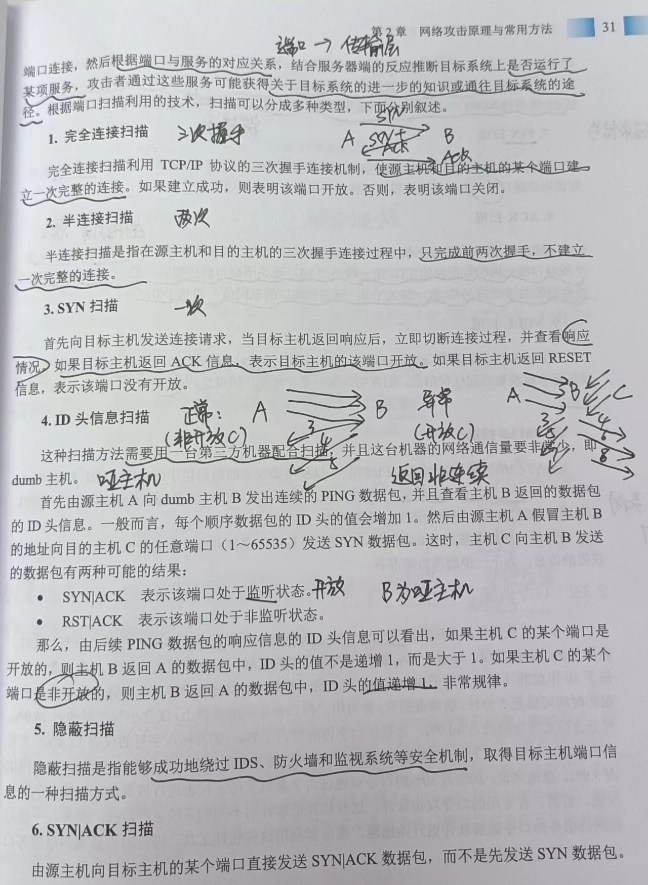 第2章 网络攻击原理与常用方法 31
端口 → 传输层
端口连接，然后根据端口与服务的对应关系，结合服务器端的反应推断目标系统上是否运行了
某项服务，攻击者通过这些服务可能获得关于目标系统的进一步的知识或通往目标系统的途
径。根据端口扫描利用的技术，扫描可以分成多种类型，下面分别叙述。
SYN
1. 完全连接扫描 三次握手 A SYN+ B
ACK
ACK
完全连接扫描利用 TCP/IP 协议的三次握手连接机制，使源主机和目的主机的某个端口建
立一次完整的连接。如果建立成功，则表明该端口开放。否则，表明该端口关闭。
2. 半连接扫描 两次
半连接扫描是指在源主机和目的主机的三次握手连接过程中，只完成前两次握手，不建立
一次完整的连接。
3. SYN 扫描 一次
首先向目标主机发送连接请求，当目标主机返回响应后，立即切断连接过程，并查看响应
情况。如果目标主机返回 ACK 信息，表示目标主机的该端口开放。如果目标主机返回 RESET
信息，表示该端口没有开放。
4. ID 头信息扫描 正常： A B 异常 A B C
(非开放C) 3 4 (开放C) 3 4
这种扫描方法需要用一台第三方机器配合扫描，并且这台机器的网络通信量要非常少，即
dumb 主机。 哑主机 返回非连续
首先由源主机 A 向 dumb 主机 B 发出连续的 PING 数据包，并且查看主机 B 返回的数据包
的 ID 头信息。一般而言，每个顺序数据包的 ID 头的值会增加 1。然后由源主机 A 假冒主机 B
的地址向目的主机 C 的任意端口（1～65535）发送 SYN 数据包。这时，主机 C 向主机 B 发送
的数据包有两种可能的结果：
• SYN|ACK 表示该端口处于监听状态。开放 B为哑主机
• RST|ACK 表示该端口处于非监听状态。
那么，由后续 PING 数据包的响应信息的 ID 头信息可以看出，如果主机 C 的某个端口是
开放的，则主机 B 返回 A 的数据包中，ID 头的值不是递增 1，而是大于 1。如果主机 C 的某个
端口是非开放的，则主机 B 返回 A 的数据包中，ID 头的值递增 1，非常规律。
5. 隐蔽扫描
隐蔽扫描是指能够成功地绕过 IDS、防火墙和监视系统等安全机制，取得目标主机端口信
息的一种扫描方式。
6. SYN|ACK 扫描
由源主机向目标主机的某个端口直接发送 SYN|ACK 数据包，而不是先发送 SYN 数据包。